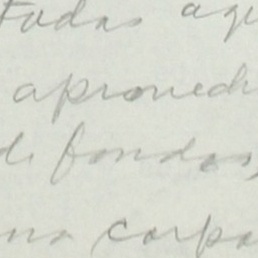 Todas aqu
aprovech
de fondos,
una carpa